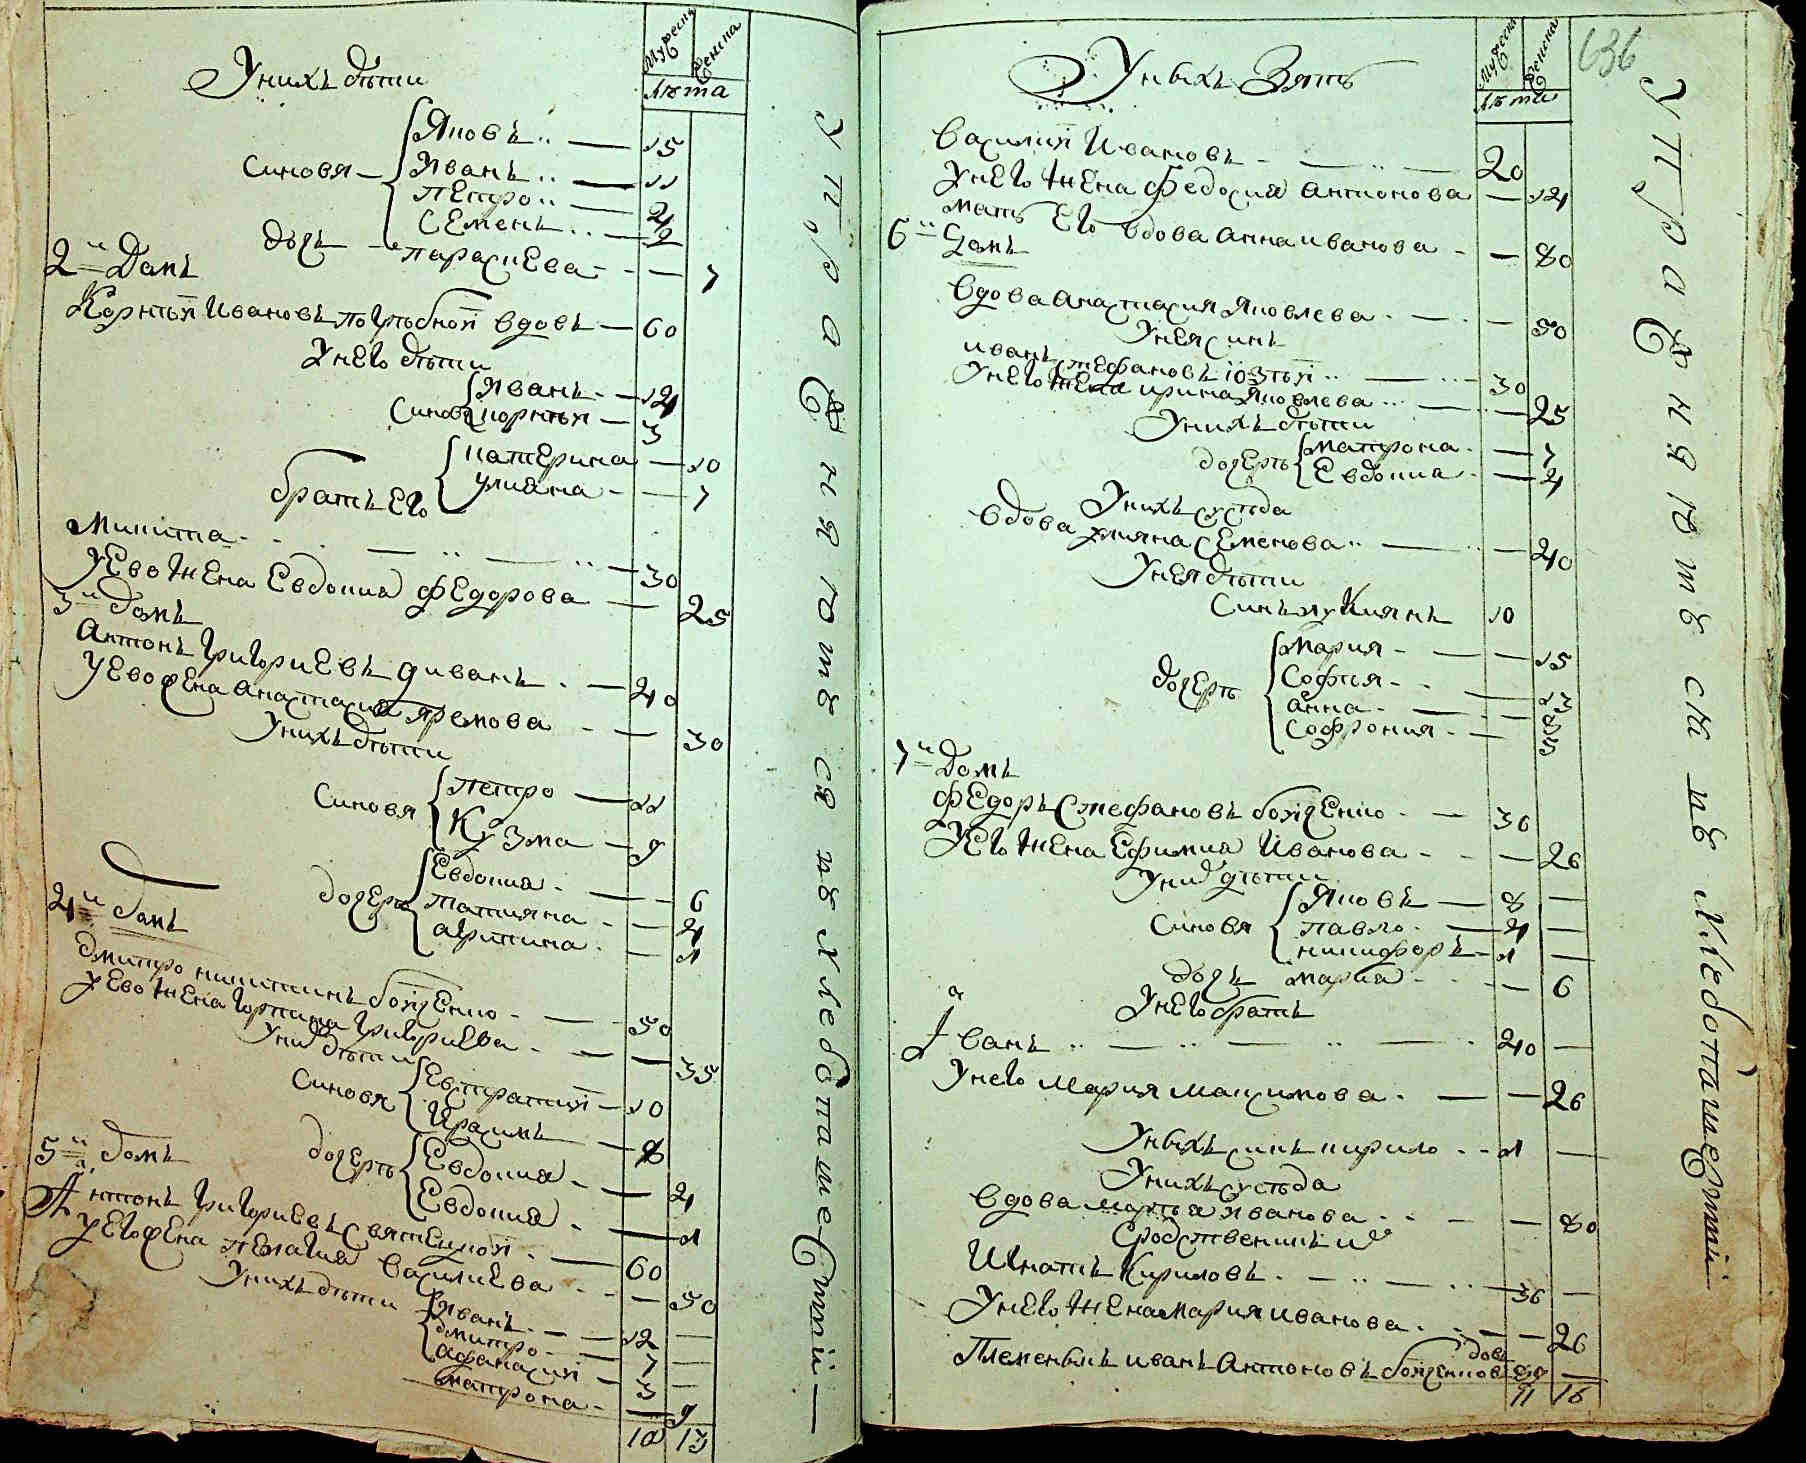 Мужеска
Женска
лѣта
Унихъ дѣти
Яковъ 15
синовя Иванъ 11
петро 4
семенъ 2
дочь параскиева 7
2й Домъ
Корнѣй Ивановъ погрѣбной вдовъ 60
Унего дѣти
Иванъ 14
синовя корнѣй 3
катерина 10
улияна 7
братъ его
Микита 30
Уево жена Евдокия Федорова 25
3й домъ
Антонъ григориевъ диванъ 40
Уево жена анастасия яремова 30
Унихъ дѣти
синовя петро 11
Кузма 9
Евдокия 6
дочерѣ татияна 4
агрипина 1
4й домъ
дмитро никитинъ 50
Уево жена григориева 35
Уних дѣти
Евстратий 10
синовя Герасимъ 8
5й домъ
дочерѣ Евдокия 4
Евдокия 1
Антонъ григориевъ 60
Уего жена пелагия василиева 50
Унихъ дѣти
Иванъ 12
дмитро 7
афанасий 3
матрона 9
18 13
Упражняются въ хлебопашествѣ
Мужеска
Женска
лѣта
636
Унихъ Зять
василий Ивановъ 20
Унего жена федосия антонова 14
мать его вдова анна иванова 80
6й Домъ
вдова анастасия Яковлева 50
Унея синъ
иванъ стефановъ 30
Унего жена ирина Яковлева 25
Унихъ дѣти
дочерѣ матрона 7
Евдокия 4
Унихъ сусѣда
вдова улияна семенова 40
Унея дѣти
Синъ лукиянъ 10
Мария 15
дочерѣ Софья 13
анна 8
Софрония 5
7й Домъ
федоръ Стефановъ 36
Уего жена Ефимия Иванова 26
Уних дѣти
Яковъ 8
Синовя павло 4
никифоръ 1
дочь мария 6
Унего братъ
Iванъ 40
Унего Мария Максимова 26
Унихъ синъ кирило 1
Унихъ сусѣда
вдова марѣя иванова 80
Сродственникъ их
Игнатъ Кириловъ 36
Унего жена мария иванова 26
Племеникъ иванъ Антоновъ вдовъ
11 16
Упражняются въ Хлебопашествѣ